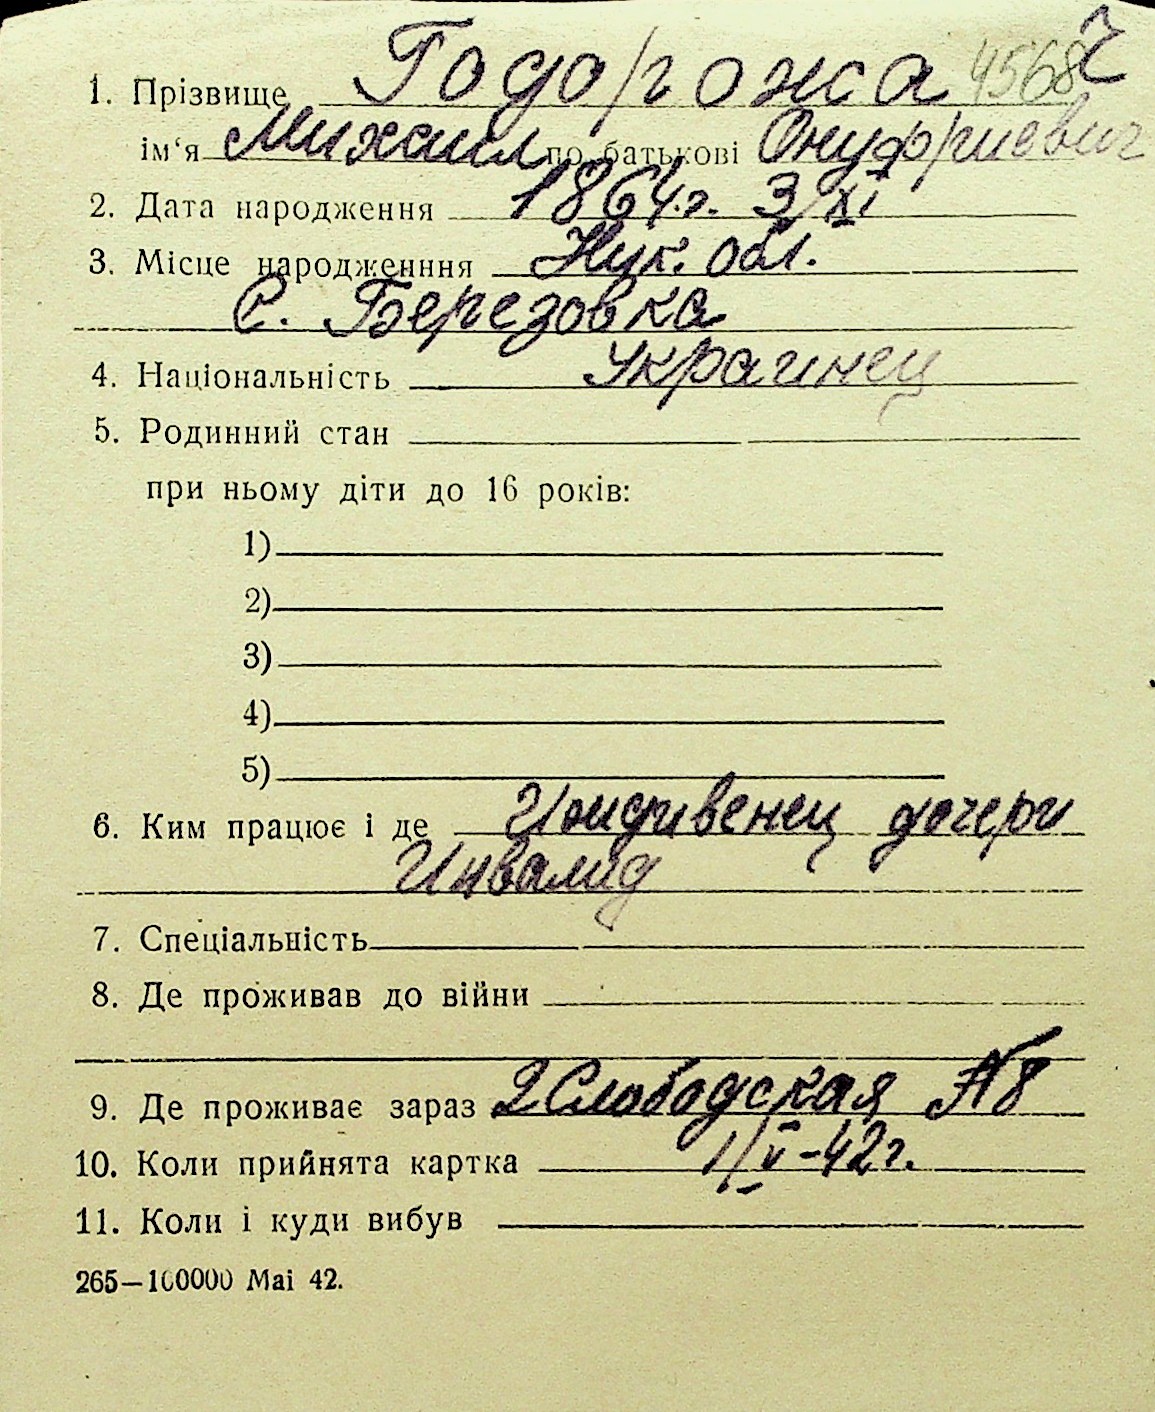 1. Прізвище Годорожа 4568 Г
ім'я Михаил по батькові Онуфриевич
2. Дата народження 1864.г. 3/XI
3. Місце народженння Ник. обл.
с. Березовка
4. Національність Украинец
5. Родинний стан
при ньому діти до 16 років:
1)
2)
3)
4)
5)
6. Ким працює і де Иждивенец дочери
Инвалид
7. Спеціальність
8. Де проживав до війни
9. Де проживає зараз 2 Слободская №8
10. Коли прийнята картка 1/V-42г.
11. Коли і куди вибув
265—100000 Mai 42.